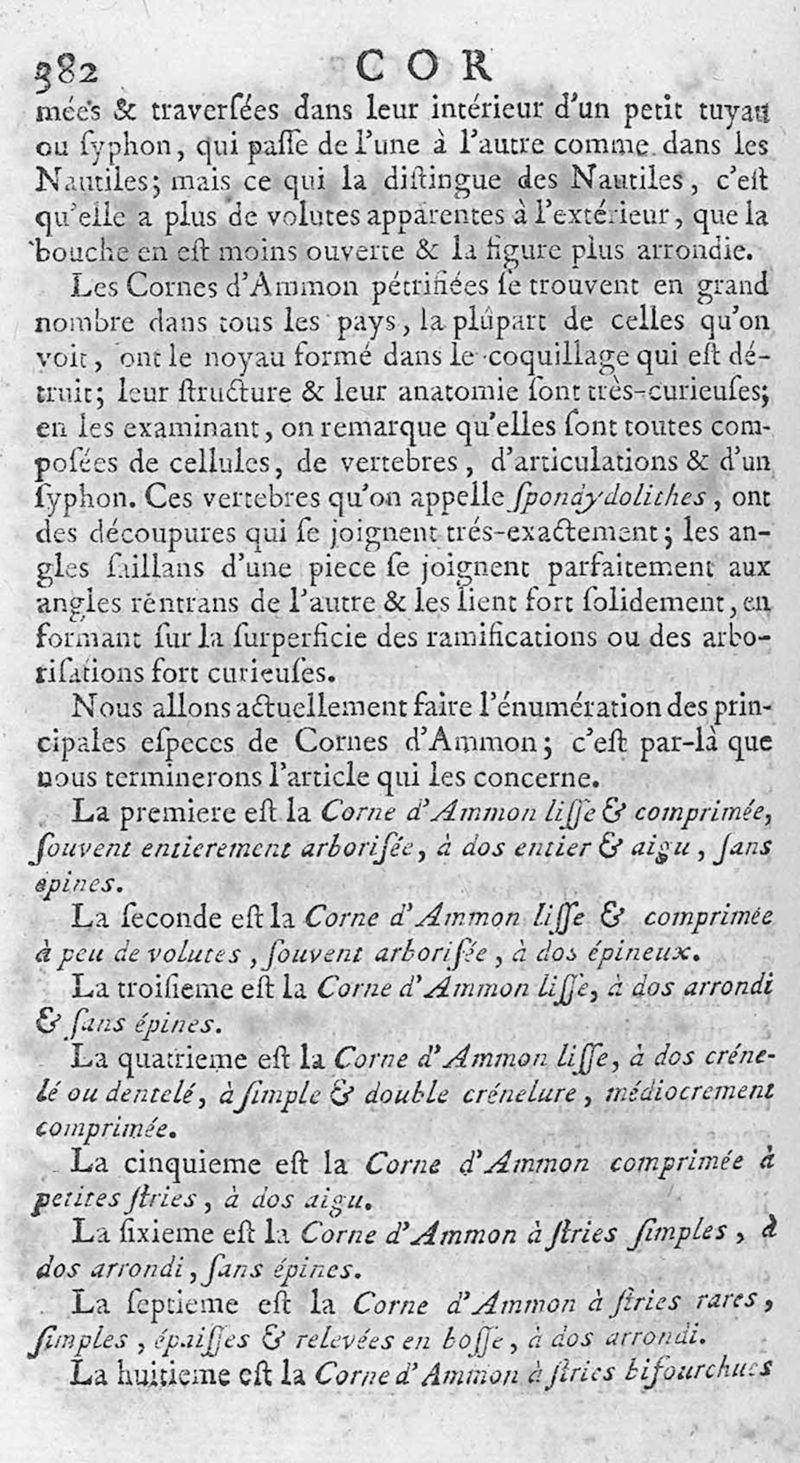 382 COR
mées & traverſées dans leur intérieur d'un petit tuyau
ou ſyphon, qui paſſe de l'une à l'autre comme dans les
Nautiles; mais ce qui la diſtingue des Nautiles, c'eſt
qu'elle a plus de volutes apparentes à l'extérieur, que la
bouche en eſt moins ouverte & la figure plus arrondie.
Les Cornes d'Ammon pétrifiées ſe trouvent en grand
nombre dans tous les pays, la plûpart de celles qu'on
voit, ont le noyau formé dans le coquillage qui eſt dé-
truit; leur ſtructure & leur anatomie ſont très-curieuſes;
en les examinant, on remarque qu'elles ſont toutes com-
poſées de cellules, de vertebres, d'articulations & d'un
ſyphon. Ces vertebres qu'on appelle ſpondydolithes, ont
des découpures qui ſe joignent trés-exactement; les an-
gles ſaillans d'une piece ſe joignent parfaitement aux
angles réntrans de l'autre & les lient fort ſolidement, en
formant ſur la ſurperficie des ramifications ou des arbo-
riſations fort curieuſes.
Nous allons actuellement faire l'énumération des prin-
cipales eſpeces de Cornes d'Ammon; c'eſt par-là que
nous terminerons l'article qui les concerne.
La premiere eſt la Corne d'Ammon liſſe & comprimée,
ſouvent entierement arboriſée, à dos entier & aigu, ſans
épines.
La ſeconde eſt la Corne d'Ammon liſſe & comprimée
à peu de volutes, ſouvent arboriſée, à dos épineux.
La troiſieme eſt la Corne d'Ammon liſſe, à dos arrondi
& ſans épines.
La quatrieme eſt la Corne d'Ammon liſſe, à dos créne-
lé ou dentelé, à ſimple & double crénelure, médiocrement
comprimée.
La cinquieme eſt la Corne d'Ammon comprimée à
petites ſtries, à dos aigu.
La ſixieme eſt la Corne d'Ammon à ſtries ſimples, à
dos arrondi, ſans épines.
La ſeptieme eſt la Corne d'Ammon à ſtries rares,
ſimples, épaiſſes & relevées en boſſe, à dos arrondi.
La huitieme eſt la Corne d'Ammon à ſtries bifourchues